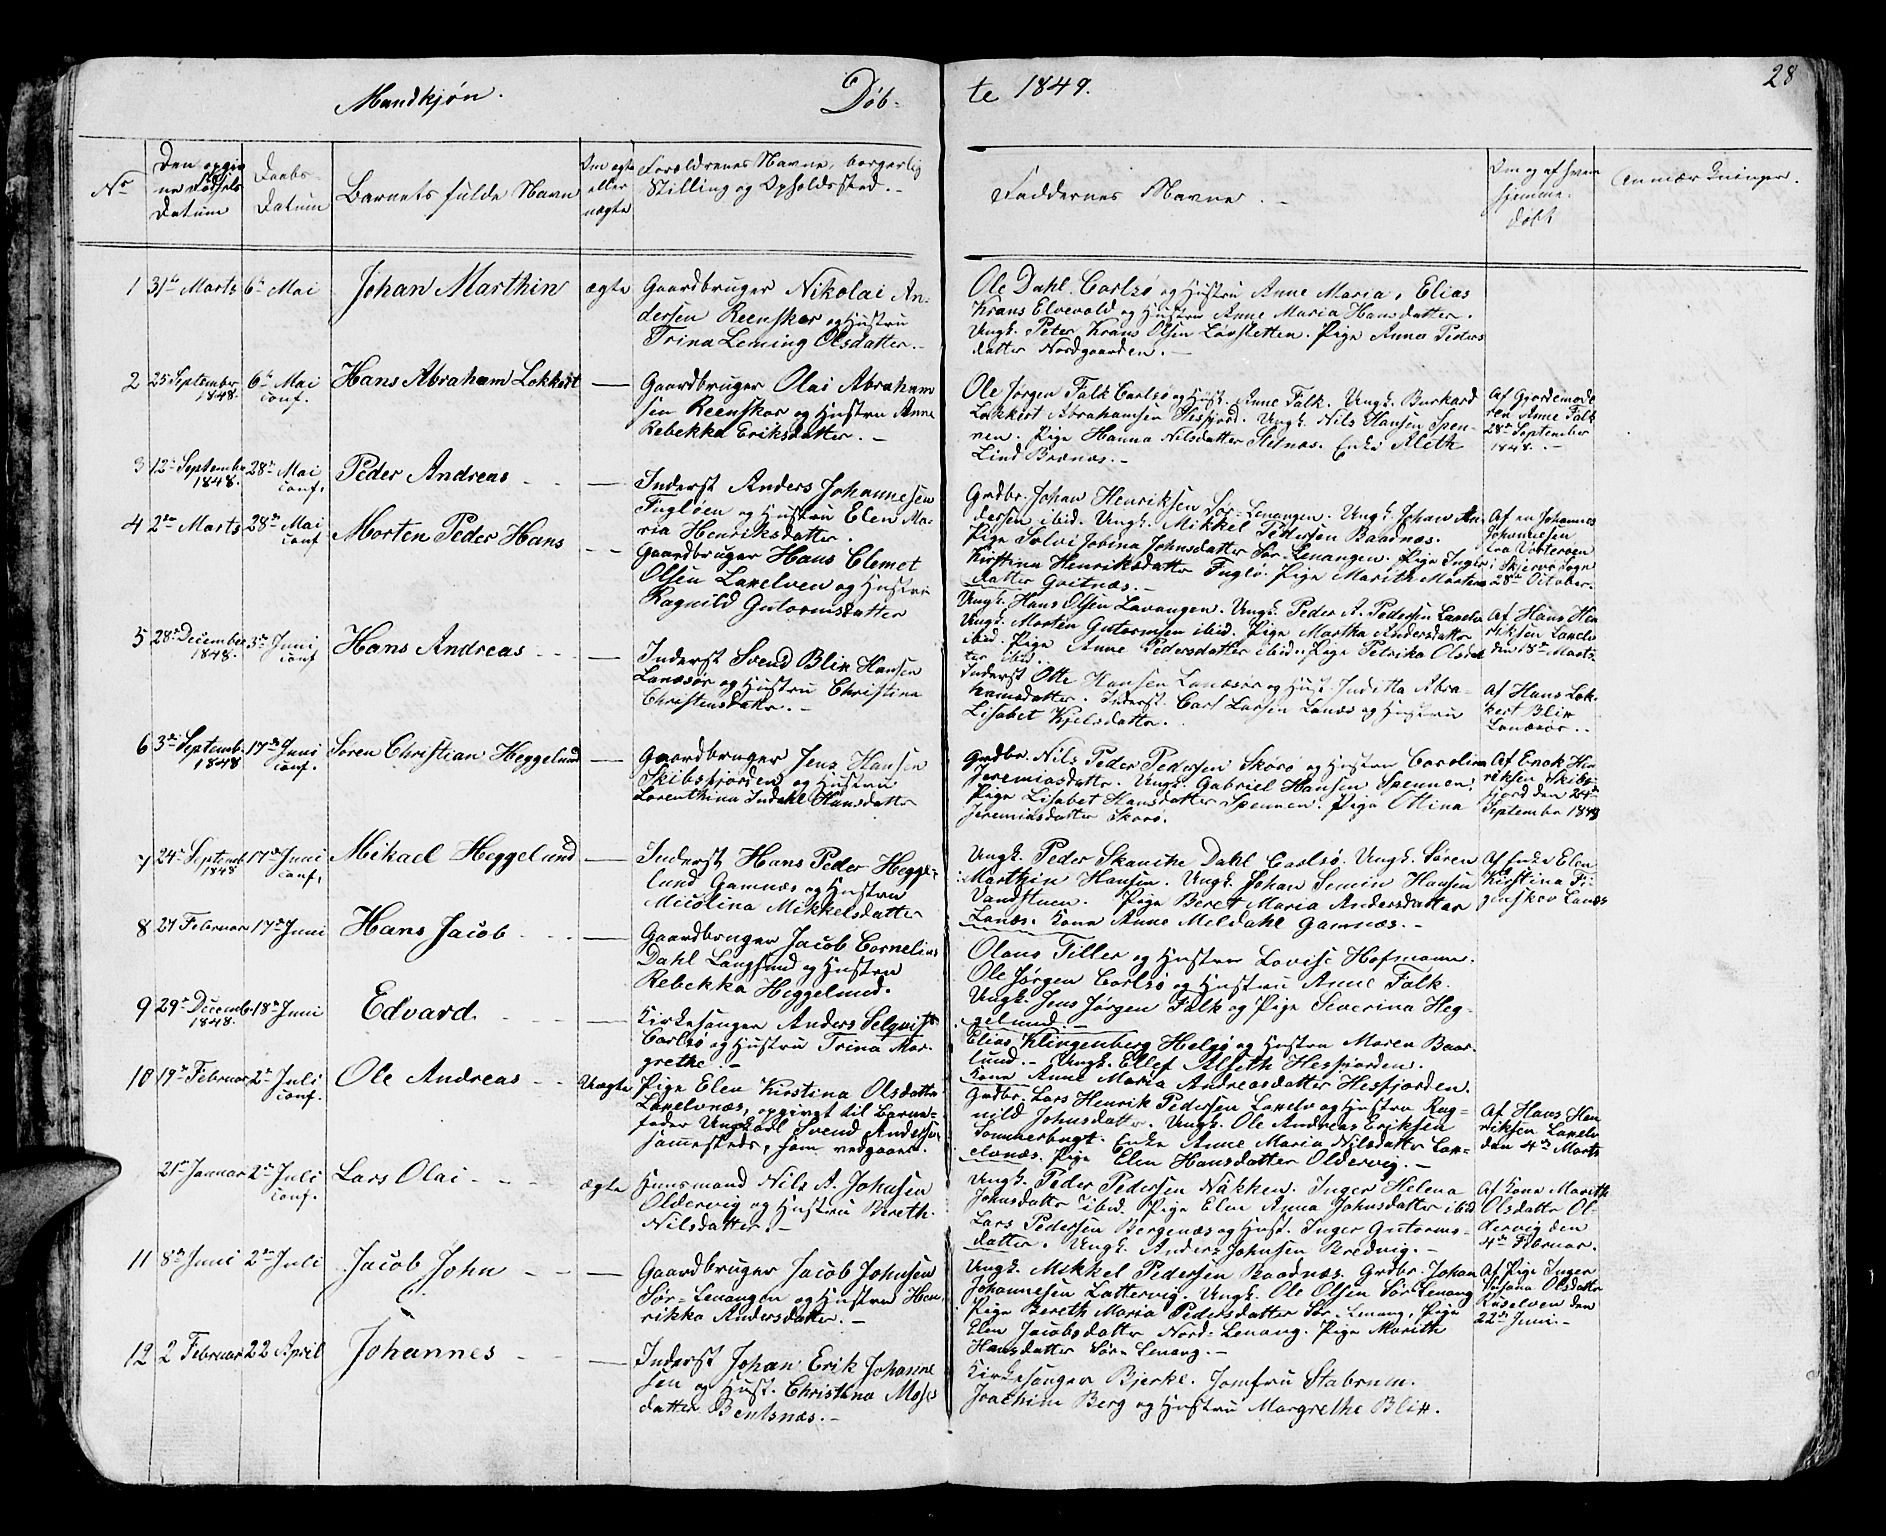 Mandkjøn.
Døb-
te 1849.
28
No
Den opgiv
ne Fødsels
Datum
Daabs-
Datum
Barnets fulde Navn
Om ægte
eller
uægte
Forældrenes Navne, borgerlig
Stilling og Opholdssted.-
Faddernes Navne.-
Om og af hvem
hjemme-
døbt
Anmærkninger.
1 31te Marts 6te Mai Johan Marthin ægte
Gaardbruger Nikolai An-
dersen Reenskar og Hustru
Trina Leming Olsdatter.-
Ole Dahl Carlsø og Hustru Anne Maria, Elias
Krans Elvevold og Hustru Anne Maria Hansdatter.
Ungk. Peter Krans Olsen Løvsletten. Pige Anna Peders
datter Nordgaarden.-
2 25 September 1848. 6te Mai conf. Hans Abraham Lokkert —
Gaardbruger Olai Abraham
sen Reenskar og Hustru Anne
Rebekka Eriksdatter.-
Ole Jørgen Falk Carlsø og Hust. Anne Falk. Ungk. Burkard
Lokkert Abrahamsen Hesfjord. Ungk. Nils Hansen Spen-
nen. Pige Hanna Nilsdatter Stilnæs. Enke Aleth
Lind Brænæs.-
Af Gjordemode
ren Anne Falk
28de September
1848.-
3 12te Septembr 1848. 28de Mai conf. Peder Andreas —
Inderst Anders Johannesen
Fugløen og Hustru Elen Ma-
ria Henriksdatter.
Grdbr. Johan Henriksen Sør-Lenangen. Ungk. Johan An
dersen ibid. Ungk. Mikkel Pedersen Baadnæs.
Pige Sølvi Jobina Johnsdatter Sør-Lenangen. Pige Inger
Kirstina Henriksdatter Fuglø. Pige Marith Mortens
datter Geitnæs.-
Af en Johannes
Johannesen
fra Vorterøen
i Skjervø Sogn
28de October.
4 2den Marts 28de Mai conf Morten Peder Hans —
Gaardbruger Hans Clemet
Olsen Lakselven og Hustru
Ragnild Gutormsdatter
Ungk. Hans Olsen Lavangen. Ungk. Peder A. Pedersen Lakselv
Ungk. Morten Gutormsen ibid. Pige Martha Andersdattr
ibid. Pige Anne Pedersdatter ibid. Pige Petrika Olsdat
ter ibid.
Af Hans Hen
riksen Lakselv
den 18de Marts
5 28de December 1848. 3die Juni conf Hans Andreas —
Inderst Svend Blix Hansen
Lanæsør og Hustru Christina
Christensdattr.-
Inderst Otte Hansen Lanæsør og Hust. Inditta Abra-
hamsdatter. Inderst Carl Larsen Lanæs og Hustru
Lisabet Kjelsdatter.
Af Hans Lok-
kert Blix
Lanæsør.
6 3die Septemb. 1848 17de Juni conf. Søren Christian Heggelund —
Gaardbruger Jens Hansen
Skibsfjorden og Hustru
Lorenthina Indahl Hansdatter
Grdbr. Nils Peder Pedersen Skorø og Hustru Carolina
Jeremiasdatter. Ungk. Gabriel Hansen Spennen.
Pige Lisabet Hansdatter Spennen. Pige Ottina
Jeremiasdatter Skorø.
Af Enok Hen
riksen Skibs-
fjord den 24de
September 1848
7 24de Septemb 1848 17de Juni conf. Mikael Heggelund —
Inderst Hans Peder Hegge-
lund Gamnæs og Hustru
Nicolina Mikkelsdatter
Ungk. Peder Skanche Dahl Carlsø. Ungk. Søren
Marthin Hansen. Ungk. Johan Semin Hansen
Vandstuen. Pige Beret Maria Andersdatter
Lanæs. Kone Anne Meldahl Gamnæs.-
Af Enke Elen
Kirstina Fi-
genskov Lanæs
8 27 Februar 17de Juni Hans Jacob —
Gaardbruger Jacob Cornelius
Dahl Langsund og Hustru
Rebekka Heggelund.
Olaus Tiller og Hustru Lovise Hofmann.
Ole Jørgen Carlsø og Hustru Anne Falk.
Ungk. Jens Jørgen Falk og Pige Severina Heg-
gelund.-
9 29de Decemb. 1848. 18de Juni Edvard —
Kirkesanger Anders Selqvist
Carlsø og Hustru Trina Mar-
grethe.-
Elias Klingenberg Helgø og Hustru Maren Baar-
lund.- Ungk. Ellef Alseth Hesfjorden.
Kone Anne Maria Andreasdatter Hesfjorden.
10 19de Februar 2den Juli conf. Ole Andreas Uægte
Pige Elen Kirstina Olsdatter
Lakselvnæs, opgivet til Barne-
fader Ungkarl Svend Andersen
sammesteds, som vedgaaer.
Grdbr. Lars Henrik Pedersen Lakselv og Hustru Rag-
nild Johnsdattr. Ungk. Ole Andreas Eriksen
Sommerbugt. Enke Anne Maria Nilsdatter Lak-
selvnæs. Pige Elen Hansdatter Oldervig.-
Af Hans Hen
riksen Lakselv
den 4de Marts
21de Januar 2den Juli conf. Lars Olai ægte
Huusmand Nils A. Johnsen
Oldervig og Hustru Bereth
Nilsdatter.-
Ungk. Peder Pedersen Nakken. Inger Helena
Johnsdatter ibid. Pige Elen Anna Johnsdatter ibid
Lars Pedersen Bergenæs og Hust. Inger Gutorms-
datter. Ungk. Anders Johnsen Bredvig.-
Af Kone Marith
Olsdatter Ol-
dervig den
4de Februar.
11 8de Juni 2den Juli Jacob John —
Gaardbruger Jacob Johnsen
Sør-Lenangen og Hustru Hen-
rikka Andersdatter.-
Ungk. Mikkel Pedersen Baadnæs. Grdbr. Johan
Johannesen Lattervig. Ungk. Ole Olsen Sør Lenang
Pige Bereth Maria Pedersdatter Sør-Lenang, Pige
Elen Jacobsdatter Nord-Lenang. Pige Marith
Hansdatter Sør-Lenang.-
Af Pige Inger
Olsdatter
den
22de Juni.-
12 2 Februar 22 April Johannes —
Inderst Johan Erik Johanne
sen og Hust. Christina Mose
datter Bentsnæs.-
Kirkesanger Bjerke. Jomfru Stabrum.
Joachim Berg og Hustru Margrethe Blix.